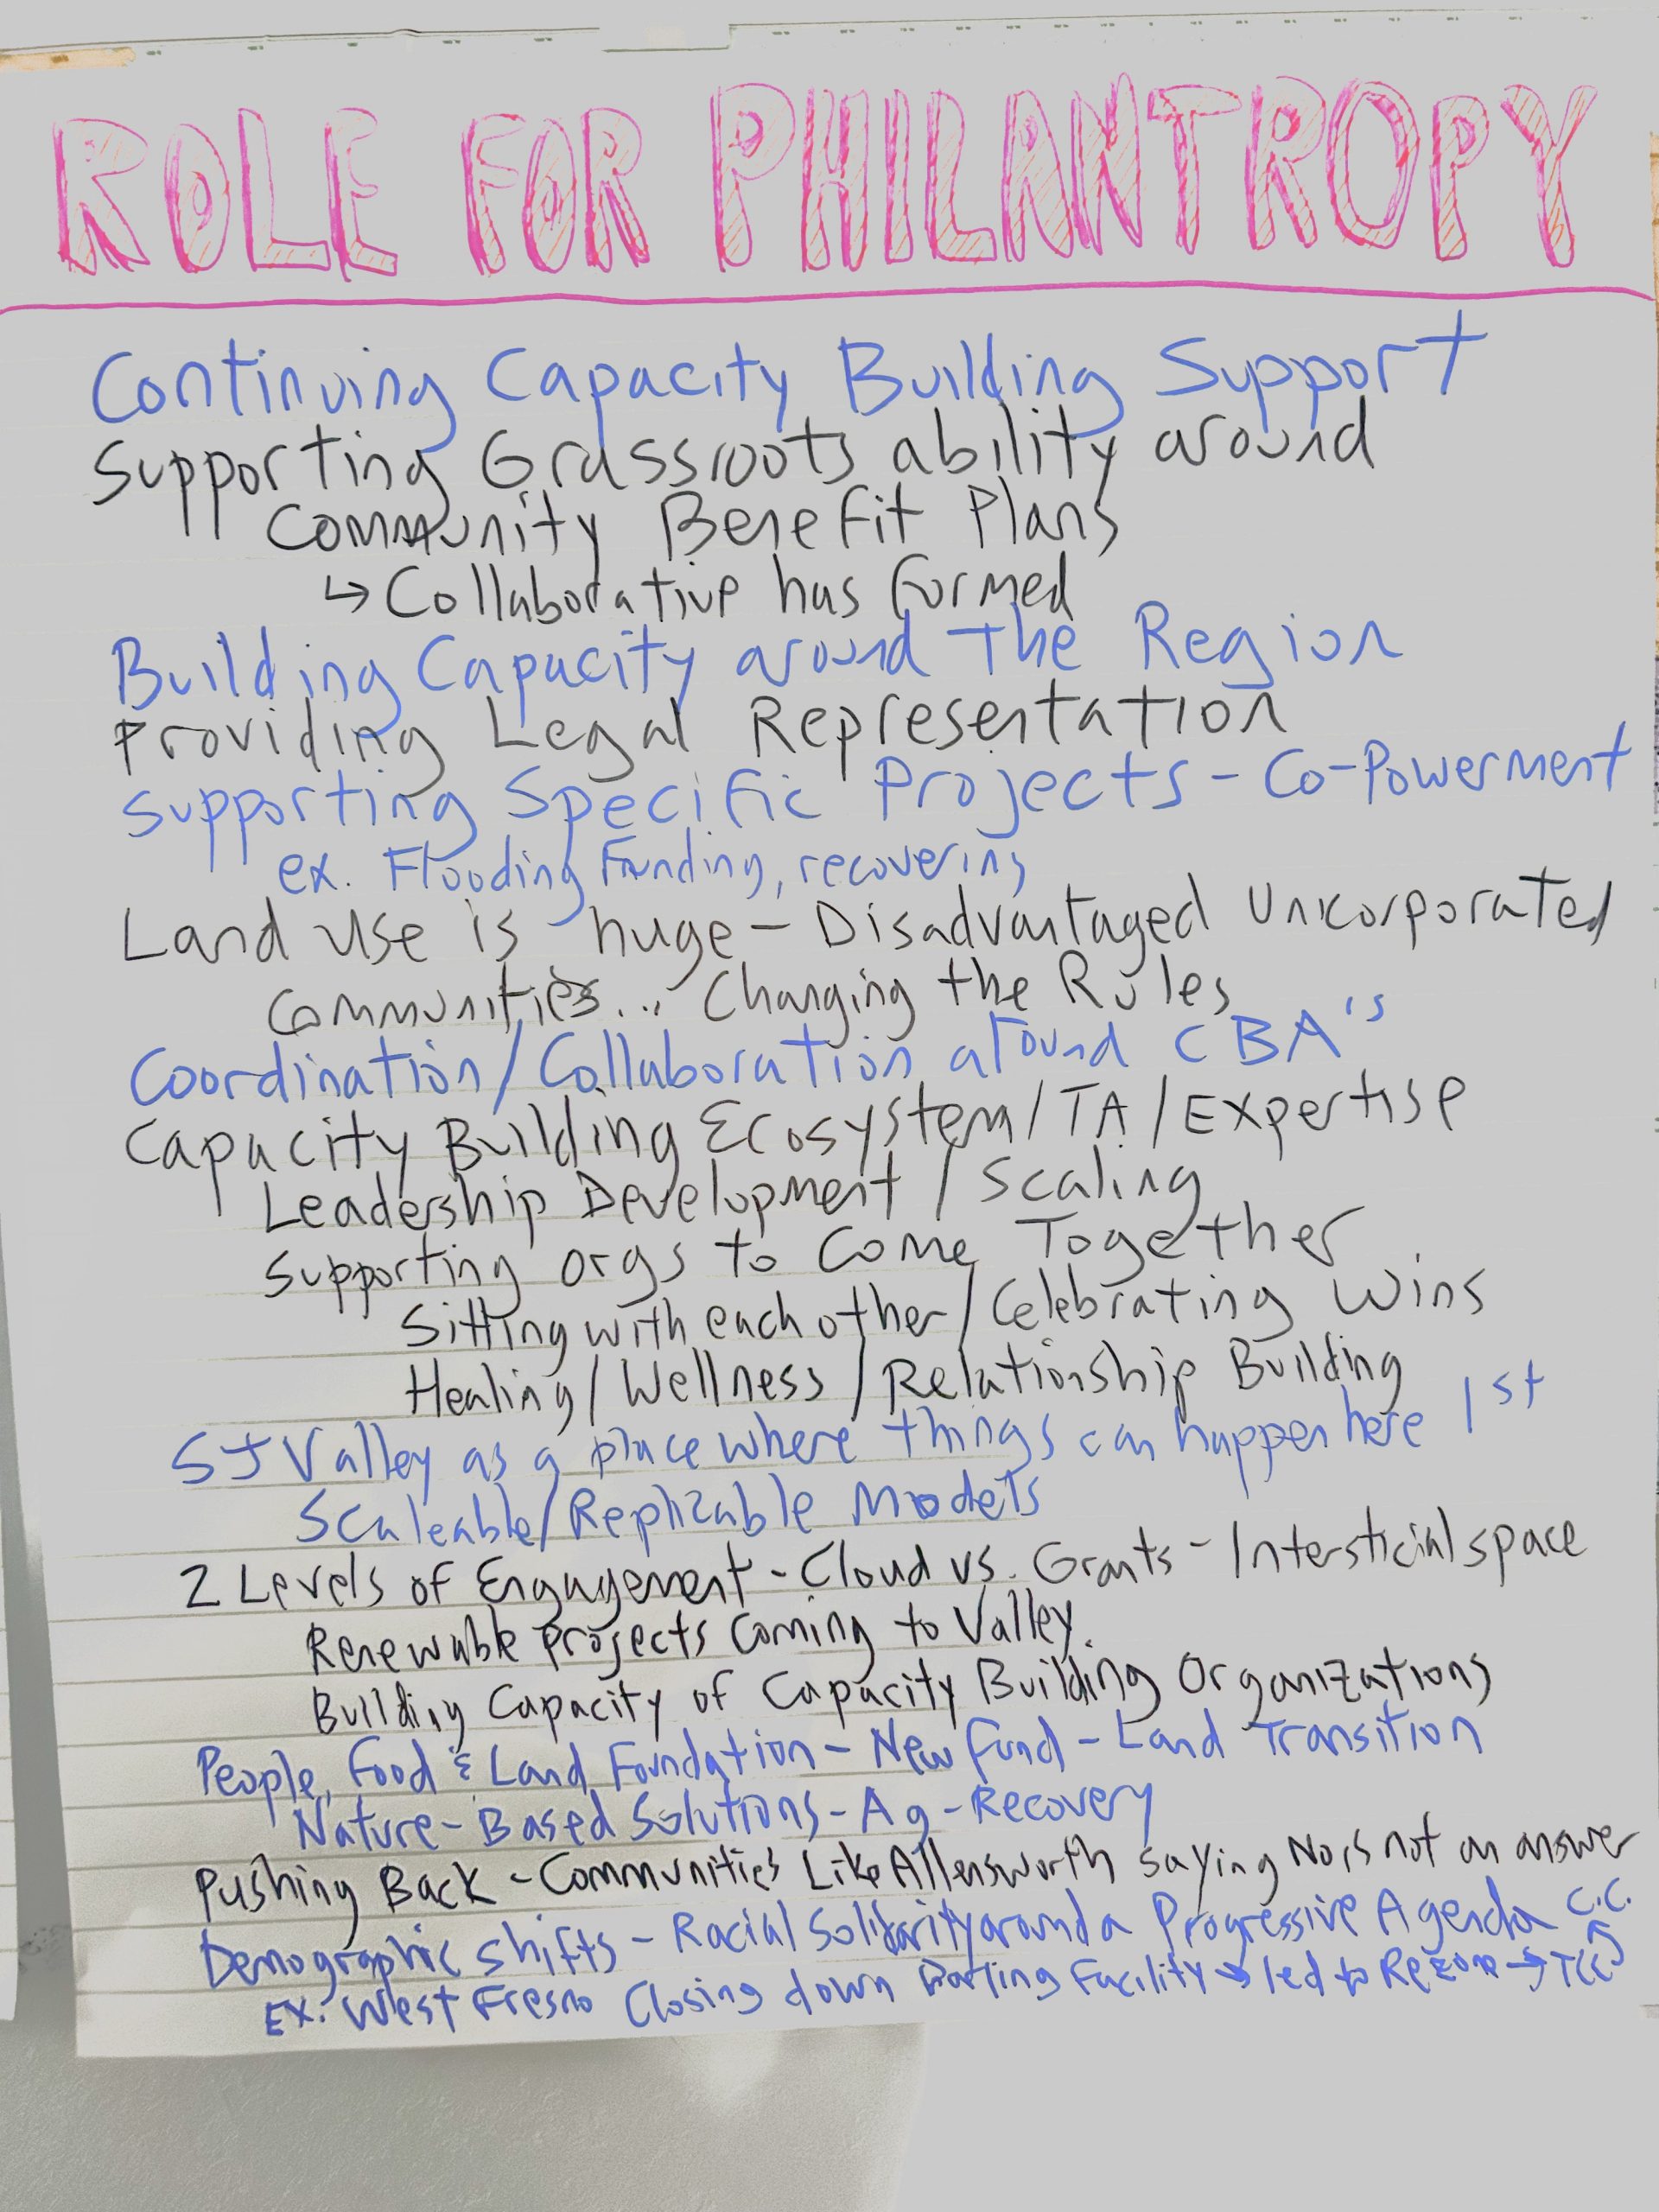 ROLE FOR PHILANTROPY
Continuing Capacity Building Support
Supporting Grassroots ability around
Community Benefit Plans
↳ Collaborative has formed
Building Capacity around The Region
Providing Legal Representation
Supporting Specific Projects - Co-Powerment
ex. Flooding Funding, recovering
Land Use is huge - Disadvantaged Unincorporated
Communities... Changing the Rules
Coordination/Collaboration around CBA's
Capacity Building Ecosystem/TA/Expertise
Leadership Development/Scaling
Supporting orgs to Come Together
Sitting with each other/Celebrating Wins
Healing/Wellness/Relationship Building
SJ Valley as a place where things can happen here 1st
Scaleable/Replicable Models
2 Levels of Engagement - Cloud vs. Grants - Intersticial space
Renewable Projects Coming to Valley.
Building Capacity of Capacity Building Organizations
People, Food & Land Foundation - New Fund - Land Transition
Nature-Based Solutions - Ag - Recovery
Pushing Back - Communities Like Allensworth saying No is not an answer
Demographic Shifts - Racial Solidarity around a Progressive Agenda C.C.
EX. West Fresno Closing down Darling Facility → led to Rezone → TCC